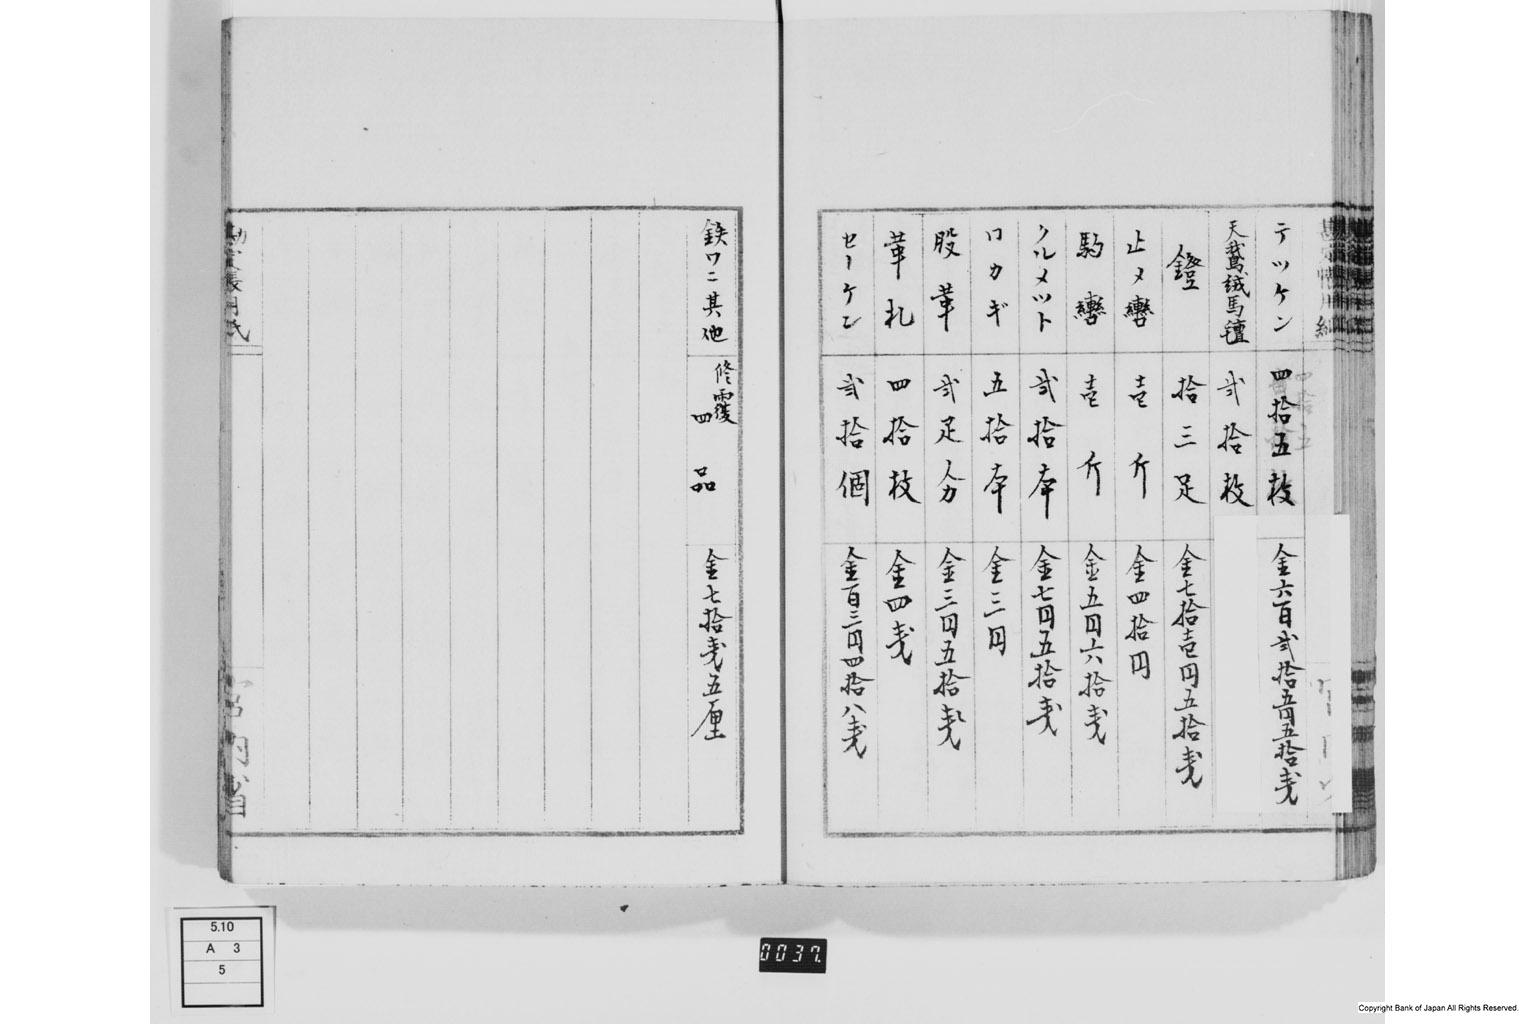 テツケン 四拾五枚 金六百弐拾五円五拾戔
天鵞絨馬氈 弐拾枚
鐙 拾三足 金七拾壱円五拾戔
止メ轡 壱斤 金四拾円
駒轡 壱斤 金五円六拾戔
クルメツト 弐拾本 金七円五拾戔
ロカギ 五拾本 金三円
股革 弐足分 金三円五拾戔
革札 四拾枚 金四戔
セーケン 弐拾個 金百三円四拾八戔
鉄ワニ其他 修覆 四品 金七拾戔五厘
5.10
A 3
5
0037.
Copyright Bank of Japan All Rights Reserved.